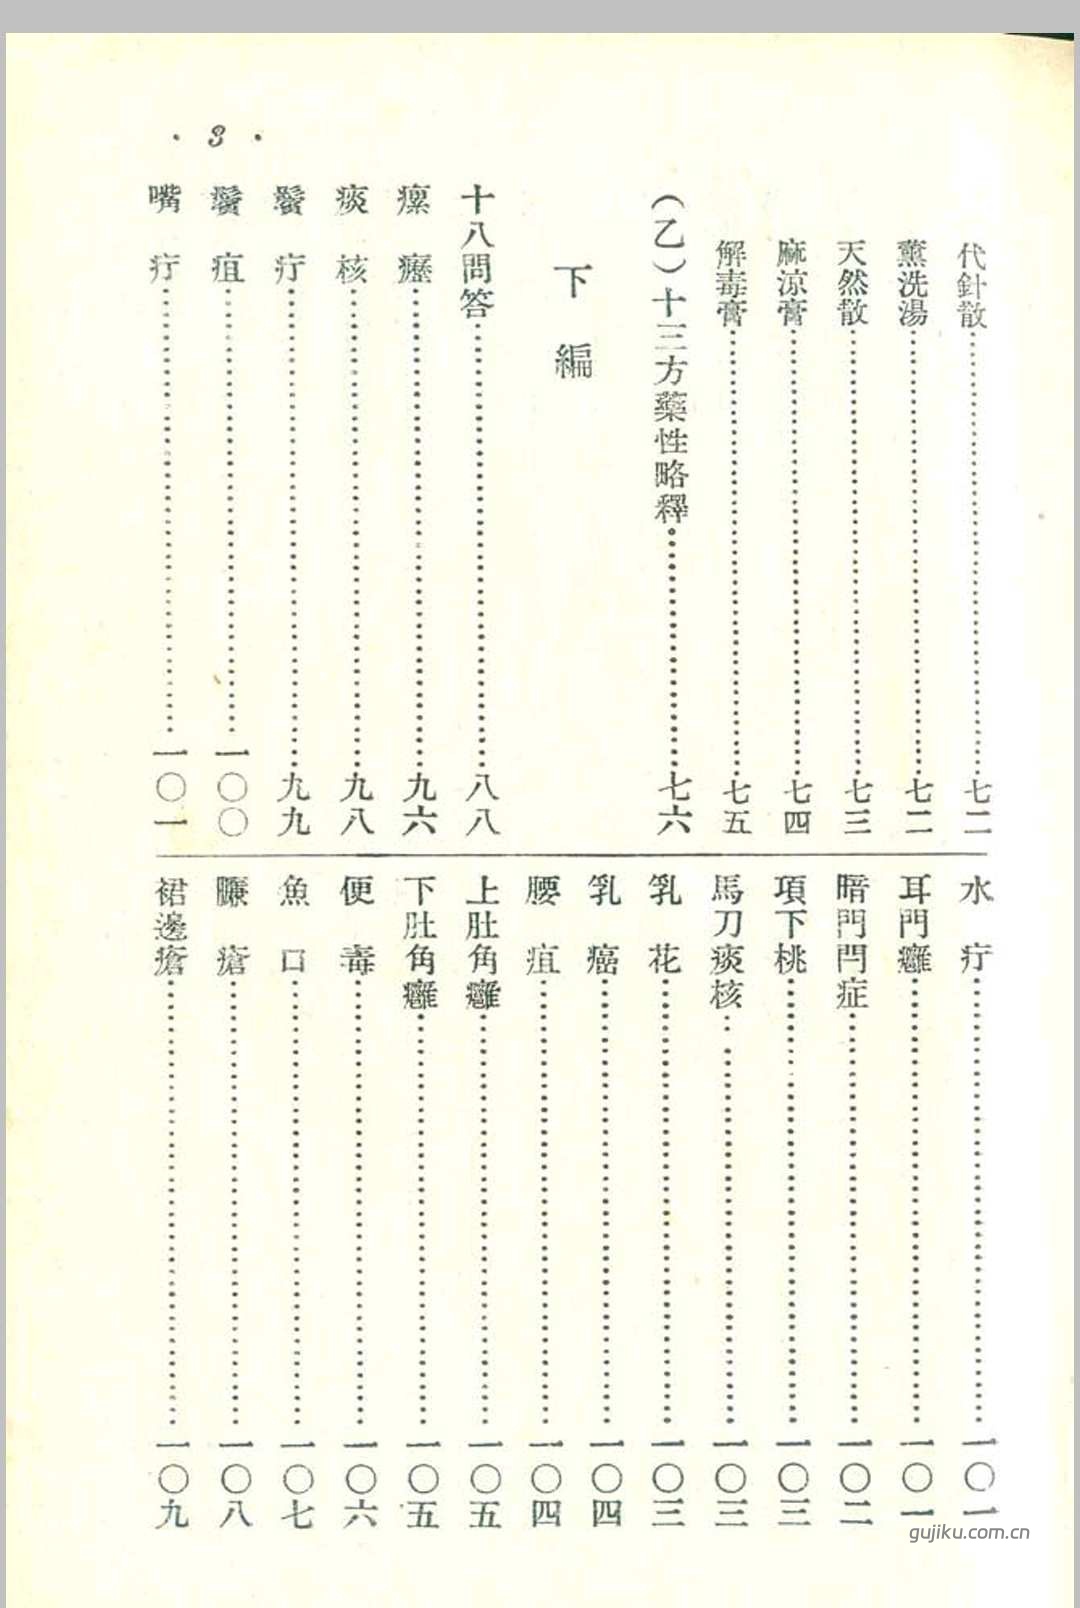 · 3 ·
代針散……七二
薰洗湯……七二
天然散……七三
麻涼膏……七四
解毒膏……七五
(乙)十三方藥性略釋……七六
下編
十八問答……八八
瘰癧……九六
痰核……九八
鬢疔……九九
鬢疽……一〇〇
嘴疔……一〇一
水疔……一〇一
耳門癰……一〇一
暗門閂症……一〇二
項下桃……一〇三
馬刀痰核……一〇三
乳花……一〇三
乳癌……一〇四
腰疽……一〇四
上肚角癰……一〇五
下肚角癰……一〇五
便毒……一〇六
魚口……一〇七
臁瘡……一〇八
裙邊瘡……一〇九
gujiku.com.cn